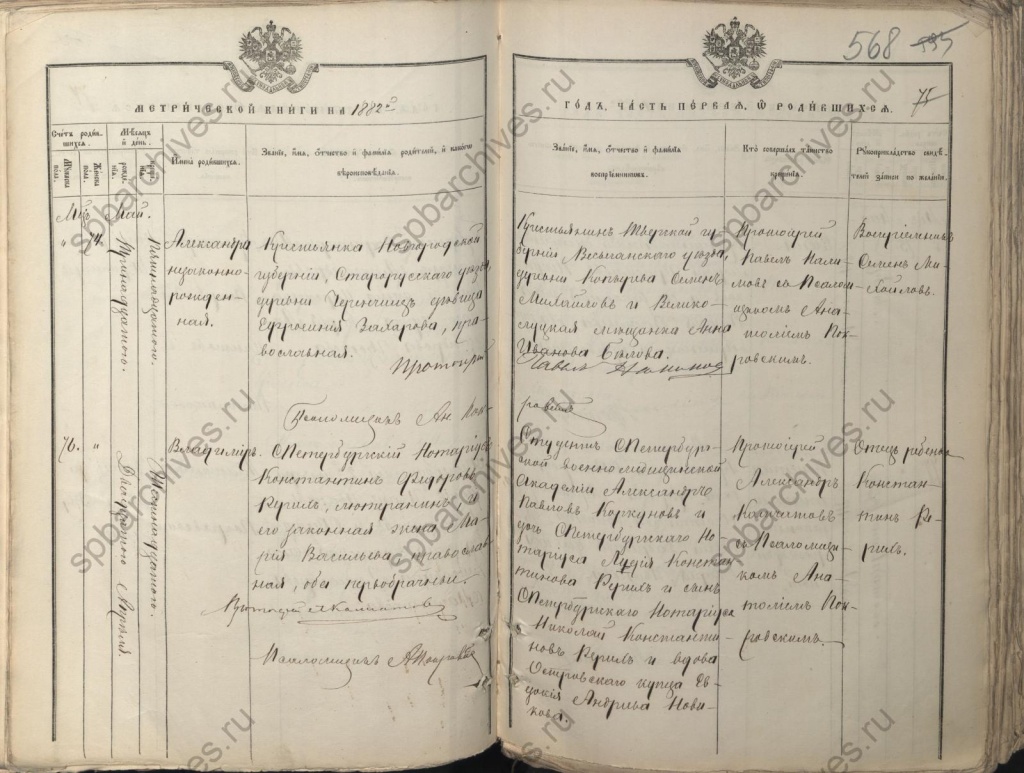 568 595
75
МЕТРИЧЕСКОЙ КНИГИ НА 1882й
ГОДЪ, ЧАСТЬ ПЕРВАЯ, Ѡ РОДИВШИХСЯ.
Счетъ родив-
шихся.
Мѣсяцъ
и день.
Мужеска
пола.
Женска
пола.
рожде-
нія.
Имена родившихся.
Званіе, имя, отчество и фамилія родителей, и какого
вѣроисповѣданія.
Званіе, имя, отчество и фамилія
воспріемниковъ.
Кто совершалъ таинство
крещенія.
Рукоприкладство свидѣ-
телей записи по желанію.
Май.
" 74.
Тринадцатого.
Александра
незаконно-
рожден-
ная.
Крестьянка Новгородской
губерніи, Старорусскаго уѣзда,
деревни дѣвица
Евфросинія Захарова, пра-
вославная.
Протоіерей
Псаломщикъ Ан. Пок-
Крестьянинъ Тверской гу-
берніи Весьегонскаго уѣзда,
деревни Семенъ
Михайловъ и Велико-
луцкая мѣщанка Анна
Иванова Бѣлова.
Павелъ
ровскій
Протоіерей
Павелъ
съ Псалом-
щикомъ Ана-
толіемъ Пок-
ровскимъ.
Воспріемникъ
Семенъ Ми-
хайловъ.
76. "
Двадцатаго Апрѣля.
Владиміръ.
СПетербургскій Нотаріусъ
Константинъ Федоровъ
лютеранинъ и
его законная жена Ма-
рія Васильева, православ-
ная, оба первобрачные.
Протоіерей А.
Псаломщикъ А. Покровскій
Студентъ СПетербург-
ской военно медицинской
Академіи Александръ
Павловъ Коркуновъ и
дочь СПетербургскаго Но-
таріуса Лидія Констан-
тинова и сынъ
СПетербургскаго Нотаріуса
Николай Константи-
новъ и вдова
Островскаго купца Ев-
докія Андреева Нови-
кова.
Протоіерей
Александръ
съ Псаломщи-
комъ Ана-
толіемъ Пок-
ровскимъ.
Отецъ ребенка
Констан-
тинъ
spbarchives.ru